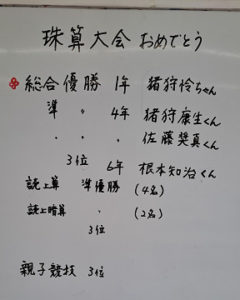 珠算大会 おめでとう
総合優勝 1年 猪狩怜ちゃん
準 〃 4年 猪狩康生くん
〃 〃 〃 佐藤奨真くん
3位 6年 根本知治くん
読上算 準優勝 (4名)
読上暗算 〃 (2名)
3位
親子競技 3位